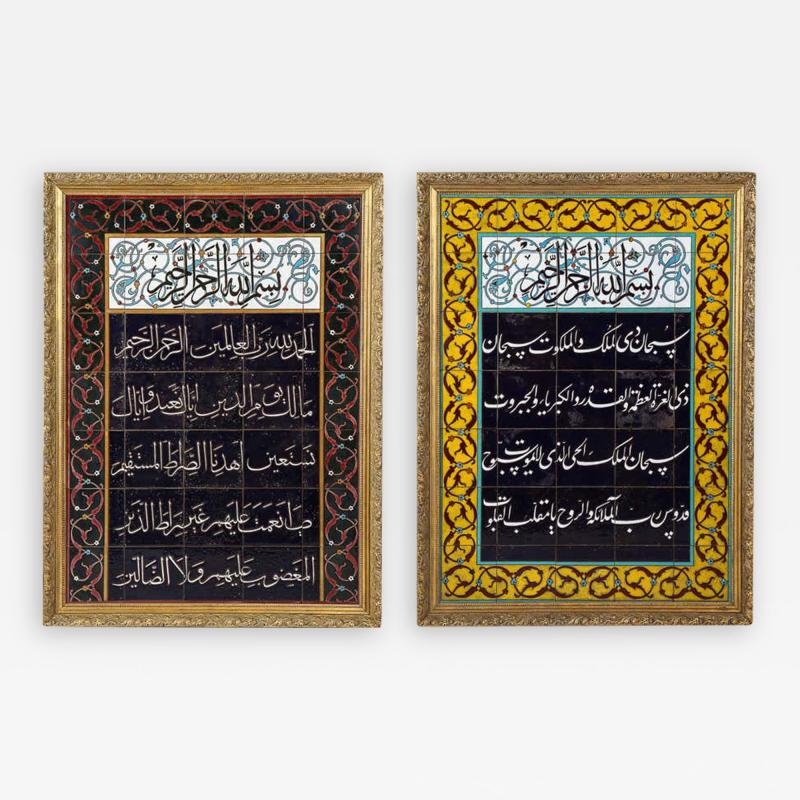 بسم الله الرحمن الرحيم
الحمد لله رب العالمين الرحمن الرحيم
مالك يوم الدين اياك نعبد و اياك
نستعين اهدنا الصراط المستقيم
انعمت عليهم غير
المغضوب عليهم ولا الضالين
بسم الله الرحمن الرحيم
سبحان ذی الملک و الملکوت سبحان
ذی العزة العظمة و القدرة و الکبریاء و الجبروت
سبحان الملک الحی الذی لایموت سبوح
قدوس رب الملائکة والروح یا مقلب القلوب